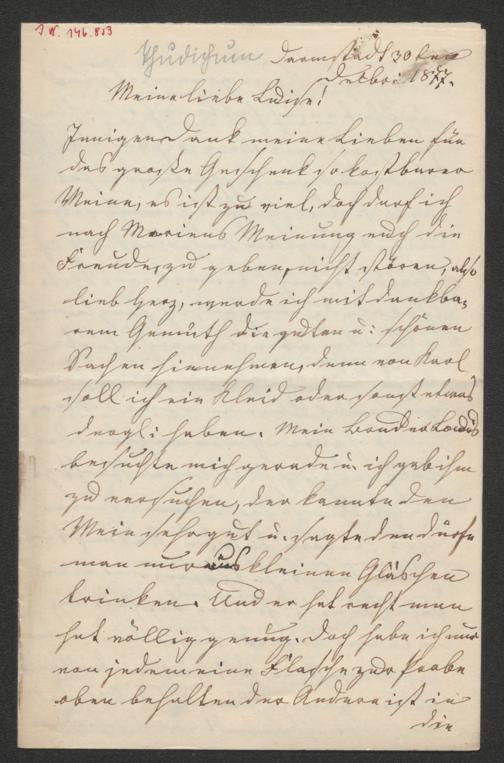 I.N. 146.853
Thudichum Darmstadt 30ten
Decbr. 1877.
Meine liebe Luise!
Innigen Dank meine Lieben für
das große Geschenk so kostbarer
Weine, es ist zu viel, doch darf ich
nach Mariens Meinung euch die
Freude, zu geben, nicht stören, also
lieb Herz, werde ich mit dankba-
rem Gemüth die guten u: schönen
Sachen hinnehmen, denn von Karl
soll ich ein Kleid oder sonst etwas
dergl: haben. Mein Bruder Louis
besuchte mich gerade u. ich gab ihm
zu versuchen, der kannte den
Wein sehr gut u. sagte den dürfe
man nur aus kleinen Gläschen
trinken. Und er hat recht man
hat völlig genug. Doch habe ich nur
von jedem eine Flasche zur Probe
oben behalten der Andere ist in
die